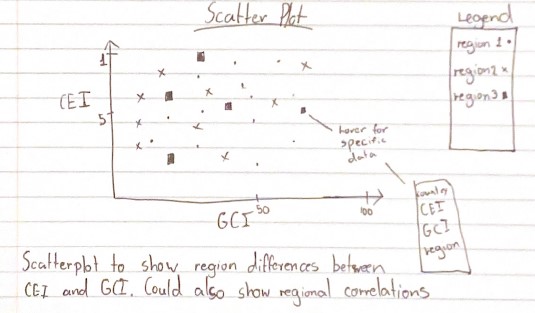 Scatter Plot
Legend
region 1 •
region 2 x
region 3 ■
1
CEI
5
hover for
specific
data
GCI
50
100
country
CEI
GCI
region
Scatterplot to show region differences between
CEI and GCI. Could also show regional correlations